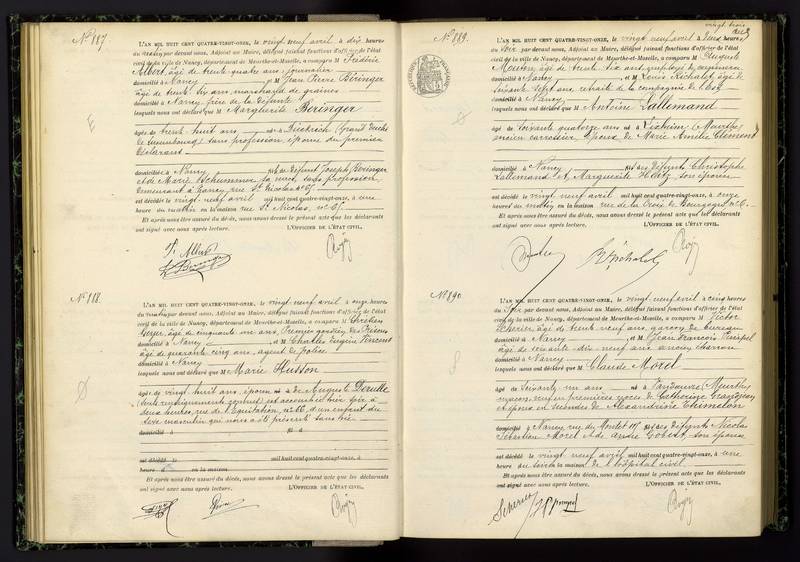 N° 887
L'AN MIL HUIT CENT QUATRE-VINGT-ONZE, le vingt neuf avril à dix heures
du matin par devant nous, Adjoint au Maire, délégué faisant fonctions d'officier de l'état
civil de la ville de Nancy, département de Meurthe-et-Moselle, a comparu M Frédéric
Albert, âgé de trente quatre ans, journalier
domicilié à Nancy et M Jean Pierre Beringer
âgé de trente six ans marchand de graines
domicilié à Nancy frère de la défunte
lesquels nous ont déclaré que M Marguerite Beringer
âgée de trente huit ans née à Diekirch (Grand Duché
de Luxembourg) sans profession, épouse du premier
déclarant
domiciliée à Nancy fille de défunt Joseph Beringer
et de Marie sa veuve, sans profession
demeurant à Nancy rue St Nicolas n° 65
est décédée le vingt-neuf avril mil huit cent quatre-vingt-onze, à une
heure du matin en la maison rue St Nicolas, n° 65.
Et après nous être assuré du décès, nous avons dressé le présent acte que les déclarants
ont signé avec nous après lecture. L'OFFICIER DE L'ÉTAT CIVIL.
F. Albert
Beringer
N° 888.
L'AN MIL HUIT CENT QUATRE-VINGT-ONZE, le vingt-neuf avril à onze heures
du matin par devant nous, Adjoint au Maire, délégué faisant fonctions d'officier de l'état
civil de la ville de Nancy, département de Meurthe-et-Moselle, a comparu M Chrétien
âgé de cinquante un ans, Premier gardien des
domicilié à Nancy et M Charles Eugène Vincent
âgé de quarante cinq ans, agent de police
domicilié à Nancy
lesquels nous ont déclaré que M Marie Husson
âgée de vingt huit ans, épouse de Auguste
(seuls renseignements connus) est accouchée hier soir à
deux heures, rue de l'Equitation, n° 66, d'un enfant du
sexe masculin qui nous a été présenté sans vie
domicilié à
est décédé le mil huit cent quatre-vingt-onze, à
heure en la maison
Et après nous être assuré du décès, nous avons dressé le présent acte que les déclarants
ont signé avec nous après lecture. L'OFFICIER DE L'ÉTAT CIVIL.
vingt trois
N° 889.
L'AN MIL HUIT CENT QUATRE-VINGT-ONZE, le vingt neuf avril à deux heures
du soir par devant nous, Adjoint au Maire, délégué faisant fonctions d'officier de l'état
civil de la ville de Nancy, département de Meurthe-et-Moselle, a comparu M Auguste
Mouton, âgé de trente six ans, employé de commerce
domicilié à Nancy et M Louis Richalet, âgé de
soixante sept ans, retraité de la compagnie de l'Est
domicilié à Nancy
lesquels nous ont déclaré que M Antoine Lallemand
âgé de soixante quatorze ans né à Lixheim (Meurthe)
ancien carrossier, époux de Marie Amélie Clément
domicilié à Nancy fils des défunts Christophe
Lallemand et Marguerite son épouse
est décédé le vingt neuf avril mil huit cent quatre-vingt-onze, à onze
heures du matin en la maison rue de la Croix de Bourgogne n° 6.
Et après nous être assuré du décès, nous avons dressé le présent acte que les déclarants
ont signé avec nous après lecture. L'OFFICIER DE L'ÉTAT CIVIL.
Richalet
N° 890.
L'AN MIL HUIT CENT QUATRE-VINGT-ONZE, le vingt-neuf avril à cinq heures
du soir par devant nous, Adjoint au Maire, délégué faisant fonctions d'officier de l'état
civil de la ville de Nancy, département de Meurthe-et-Moselle, a comparu M Victor
Scherier, âgé de trente neuf ans, garçon de bureau
domicilié à Nancy et M Jean François
âgé de soixante-dix-neuf ans ancien charron
domicilié à Nancy
lesquels nous ont déclaré que M Claude Morel
âgé de soixante un ans né à Vandœuvre (Meurthe)
maçon, veuf en premières noces de Catherine
époux en secondes de Alexandrine
domicilié à Nancy rue du Montet fils des défunts Nicolas
Sébastien Morel et de Anne Gobert, son épouse
est décédé le vingt neuf avril mil huit cent quatre-vingt-onze, à une
heure du soir en la maison de l'hôpital civil
Et après nous être assuré du décès, nous avons dressé le présent acte que les déclarants
ont signé avec nous après lecture. L'OFFICIER DE L'ÉTAT CIVIL.